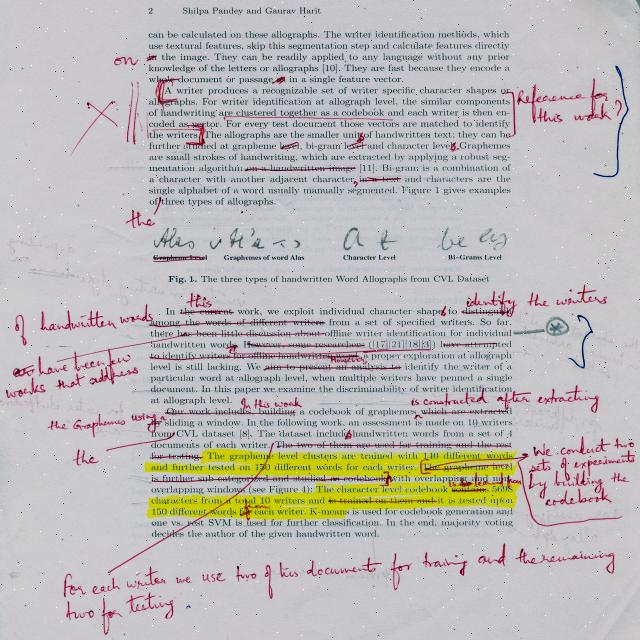 2 Shilpa Pandey and Gaurav Harit
can be calculated on these allographs. The writer identification methods, which
use textural features, skip this segmentation step and calculate features directly
on
in the image. They can be readily applied to any language without any prior
knowledge of the letters or allographs [10]. They are fast because they encode a
whole document or passage in a single feature vector.
A writer produces a recognizable set of writer specific character shapes or
allographs. For writer identification at allograph level, the similar components
of handwriting are clustered together as a codebook and each writer is then en-
coded as vector. For every test document those vectors are matched to identify
the writers. The allographs are the smaller unit of handwritten text; they can be
Reference for
this work?
further studied at grapheme level, bi-gram level and character level. Graphemes
are small strokes of handwriting, which are extracted by applying a robust seg-
mentation algorithm on a handwritten image [11]. Bi-gram: is a combination of
a character with another adjacent character in a text and characters are the
single alphabet of a word usually manually segmented. Figure 1 gives examples
of three types of allographs.
the
Alas
A t
be ey
Grapheme Level Graphemes of word Alas Character Level Bi-Grams Level
Fig. 1. The three types of handwritten Word Allographs from CVL Dataset
this
identify the writers
In the current work, we exploit individual character shape to distinguish
among the words of different writers from a set of specified writers. So far,
there has been little discussion about offline writer identification for individual
of handwritten words
have been few
works that address
handwritten word. However some researches ([17][21][18][3]) have attempted
to identify writers for offline handwriting a proper exploration at allograph
However,
level is still lacking. We aim to present an analysis to identify the writer of a
particular word at allograph level, when multiple writers have penned a single
document. In this paper we examine the discriminality of writer identification,
at allograph level.
In this work
is constructed after extracting
Our work includes, building a codebook of graphemes, which are extracted
the Graphemes using a
by sliding window. In the following work, an assessment is made on 10 writers
the
from CVL dataset [8]. The dataset include handwritten words from a set of 4
documents of each writer. The two of these are used for training and the rest
for testing. The grapheme level clusters are trained with 140 different words
and further tested on 150 different words for each writer. The grapheme level
is further sub categorized and studied as codebook with overlapping and non
overlapping windows (see Figure 4). The character level codebook contains 5698
characters from a total 10 writers and is trained on them and it is tested upon
from
150 different words of each writer. K-means is used for codebook generation and
one vs. rest SVM is used for further classification. In the end, majority voting
decides the author of the given handwritten word.
We conduct two
sets of experiments
by building the
codebook
For each writer we use two of his documents for training and the remaining
two for testing.